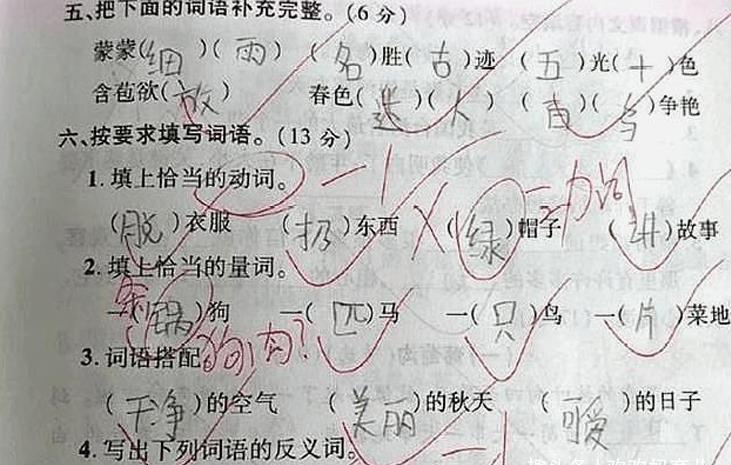 五、把下面的词语补充完整。(6分)
蒙蒙(细)(雨) (名)胜(古)迹 (五)光(十)色
含苞欲(放) 春色(迷)(人) (百)(鸟)争艳
六、按要求填写词语。(13分)
-1
1.填上恰当的动词。
动词
(脱)衣服 (扔)东西 (绿)帽子 (讲)故事
2.填上恰当的量词。
条
一(锅)狗 一(匹)马 一(只)鸟 一(片)菜地
狗肉?
3.词语搭配
(干净)的空气 (美丽)的秋天 (可爱)的日子
4.写出下列词语的反义词。